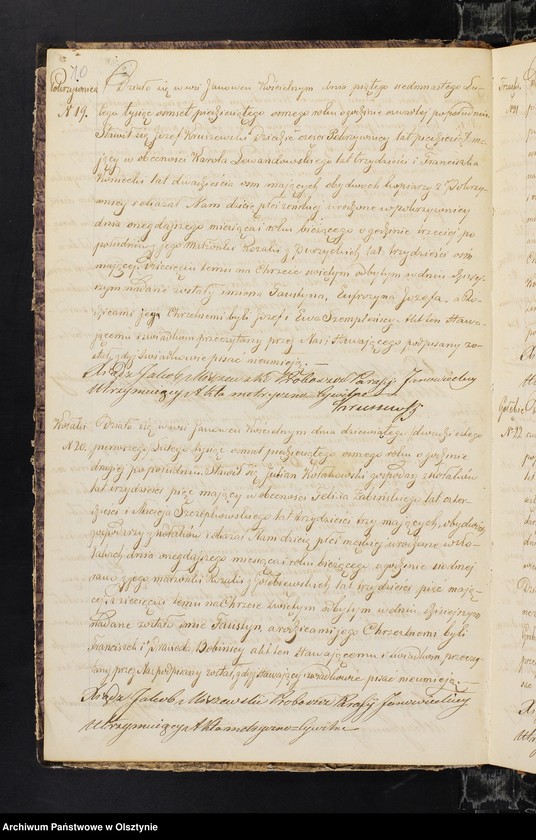 70
Pokrzywnica Działo się w wsi Janowcu Kościelnym dnia piątego siedmnastego Lu-
N 19. tego tysiąc ośmset pięćdziesiątego ósmego roku o godzinie czwartej popołudniu.
Stawił się Józef Dziedzic części Pokrzywnicy lat pięćdziesiąt ma-
jący w obecności Karola Lewandowskiego lat trzydzieści i Franciszka
lat dwadzieścia ośm mających, obydwóch z Pokrzy-
wnicy i okazał Nam dziecię płci żeńskiej urodzone w Pokrzywnicy
dnia onegdajszego miesiąca i roku bieżącego o godzinie trzeciej po
południu z jego Małżonki Rozalii z lat trzydzieści ośm
mającej. Dziecięciu temu na Chrzcie świętym odbytym w dniu dzisiej-
szym nadane zostały imiona Faustyna, Eufrozyna Józefa, a Ro-
dzicami jego Chrzestnemi byli Józef i Ewa Akt ten Stawa-
jącemu i świadkom przeczytany przez Nas i Stawającego podpisany zo-
stał, gdyż świadkowie pisać nieumieją.—
Xiądz Jakób Miszewski Proboszcz Parafii Janowieckiej
Utrzymujący Akta metryczno Cywilne

Działo się w wsi Janowcu Kościelnym dnia dziewiątego / dwudziestego
N 20. pierwszego / Lutego tysiąc ośmset pięćdziesiątego ósmego roku o godzinie
drugiej popołudniu. Stawił się Julian Kołakowski gospodarz z
lat trzydzieści pięć mający w obecności Felixa lat czter-
dzieści i Macieja Szczepkowskiego lat trzydzieści trzy mających, obydwóch
gospodarzy z i okazał Nam dziecię płci męskiej urodzone w
dnia onegdajszego miesiąca i roku bieżącego o godzinie siódmej
rano z jego małżonki Rozalii z Gołębiewskich lat trzydzieści pięć mają-
cej. Dziecięciu temu na Chrzcie świętym odbytym w dniu dzisiejszym
nadane zostało imie Faustyn, a rodzicami jego Chrzestnemi byli
Franciszek i akt ten stawającemu i świadkom przeczy-
tany przez Nas podpisany został, gdyż stawający i świadkowie pisać nieumieją.—
Xiądz Jakób Miszewski Proboszcz Parafii Janowieckiej
Utrzymujący Akta metryczno-Cywilne
N 21
N 22
Archiwum Państwowe w Olsztynie